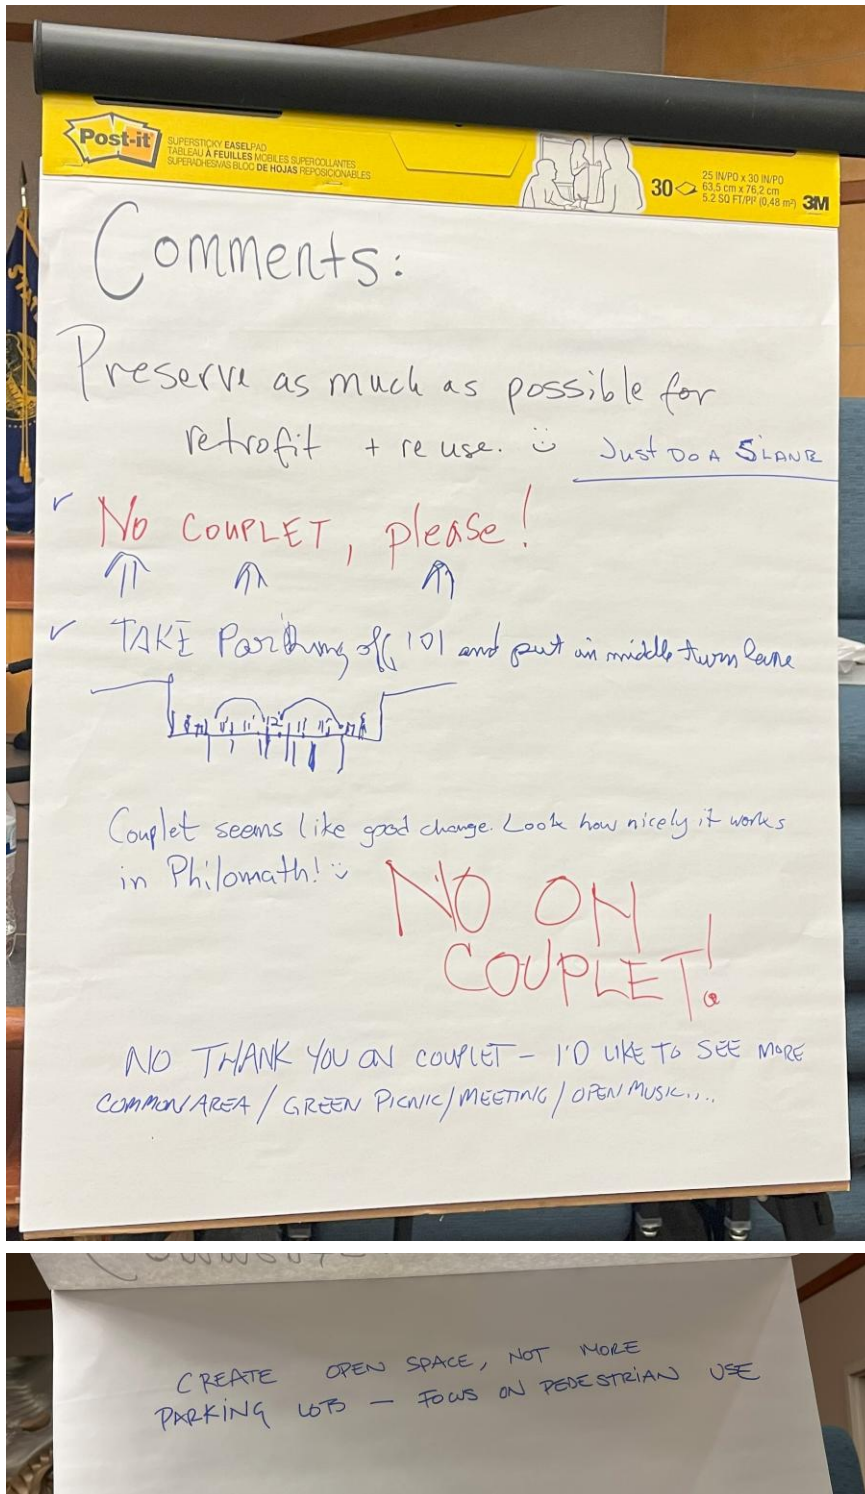 Post-it
SUPERSTICKY EASELPAD
TABLEAU À FEUILLES MOBILES SUPERCOLLANTES
SUPERADHESIVAS BLOC DE HOJAS REPOSICIONABLES
30
25 IN/PO x 30 IN/PO
63,5 cm x 76,2 cm
5.2 SQ FT/PI² (0,48 m²)
3M
Comments:
Preserve as much as possible for
retrofit + re use.
Just DO A 5 LANE
No COUPLET, please!
TAKE Parking off 101 and put in middle turn lane
11' 11' 12' 11' 11'
Couplet seems like good change. Look how nicely it works
in Philomath!
NO ON
COUPLET!
NO THANK YOU ON COUPLET – I'D LIKE TO SEE MORE
COMMON AREA / GREEN PICNIC / MEETING / OPEN MUSIC....
CREATE OPEN SPACE, NOT MORE
PARKING LOTS — FOCUS ON PEDESTRIAN USE